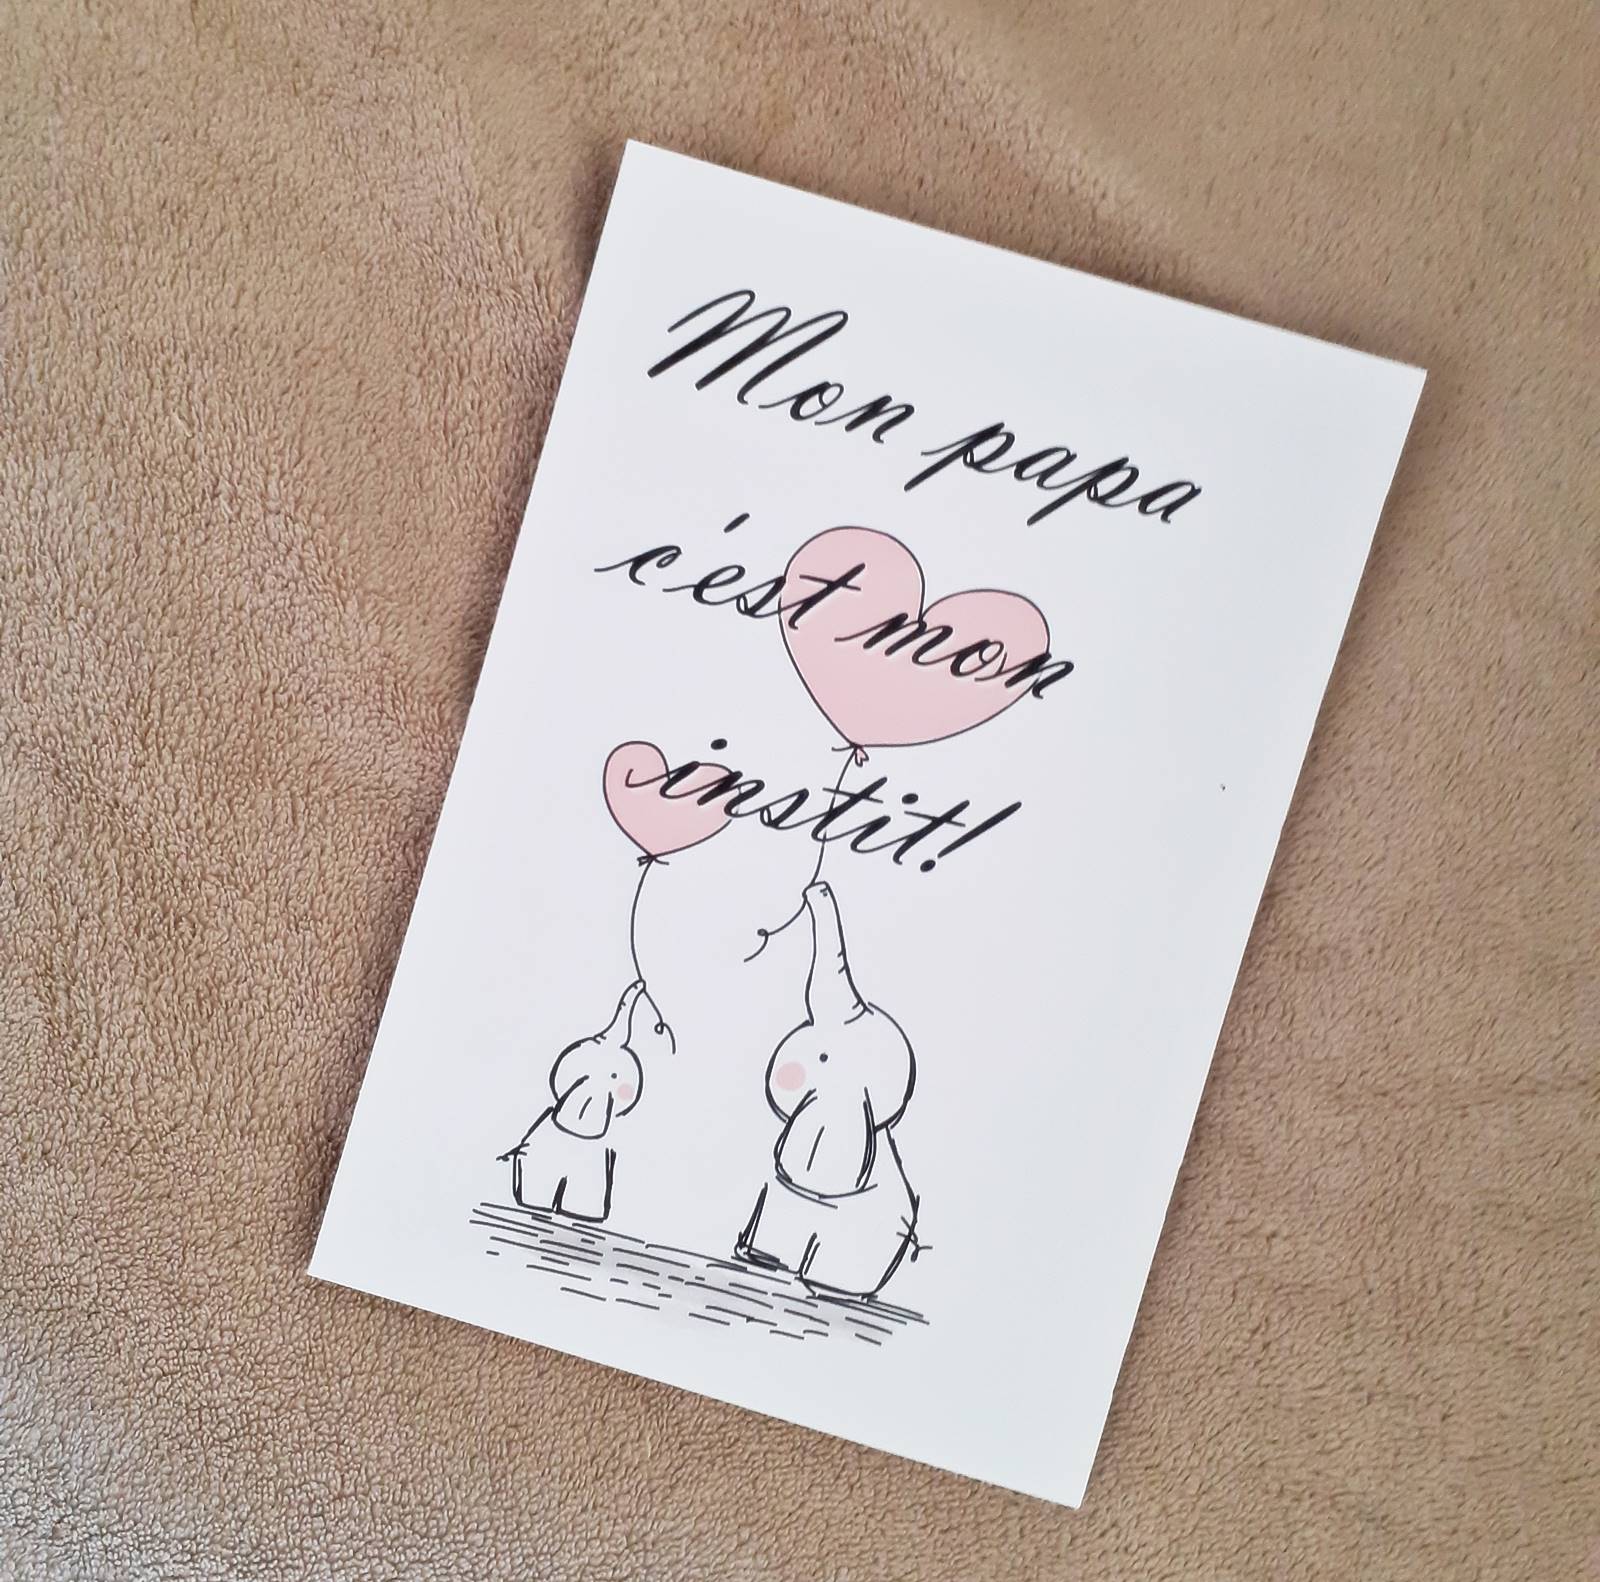 Mon papa
c'est mon
instit!